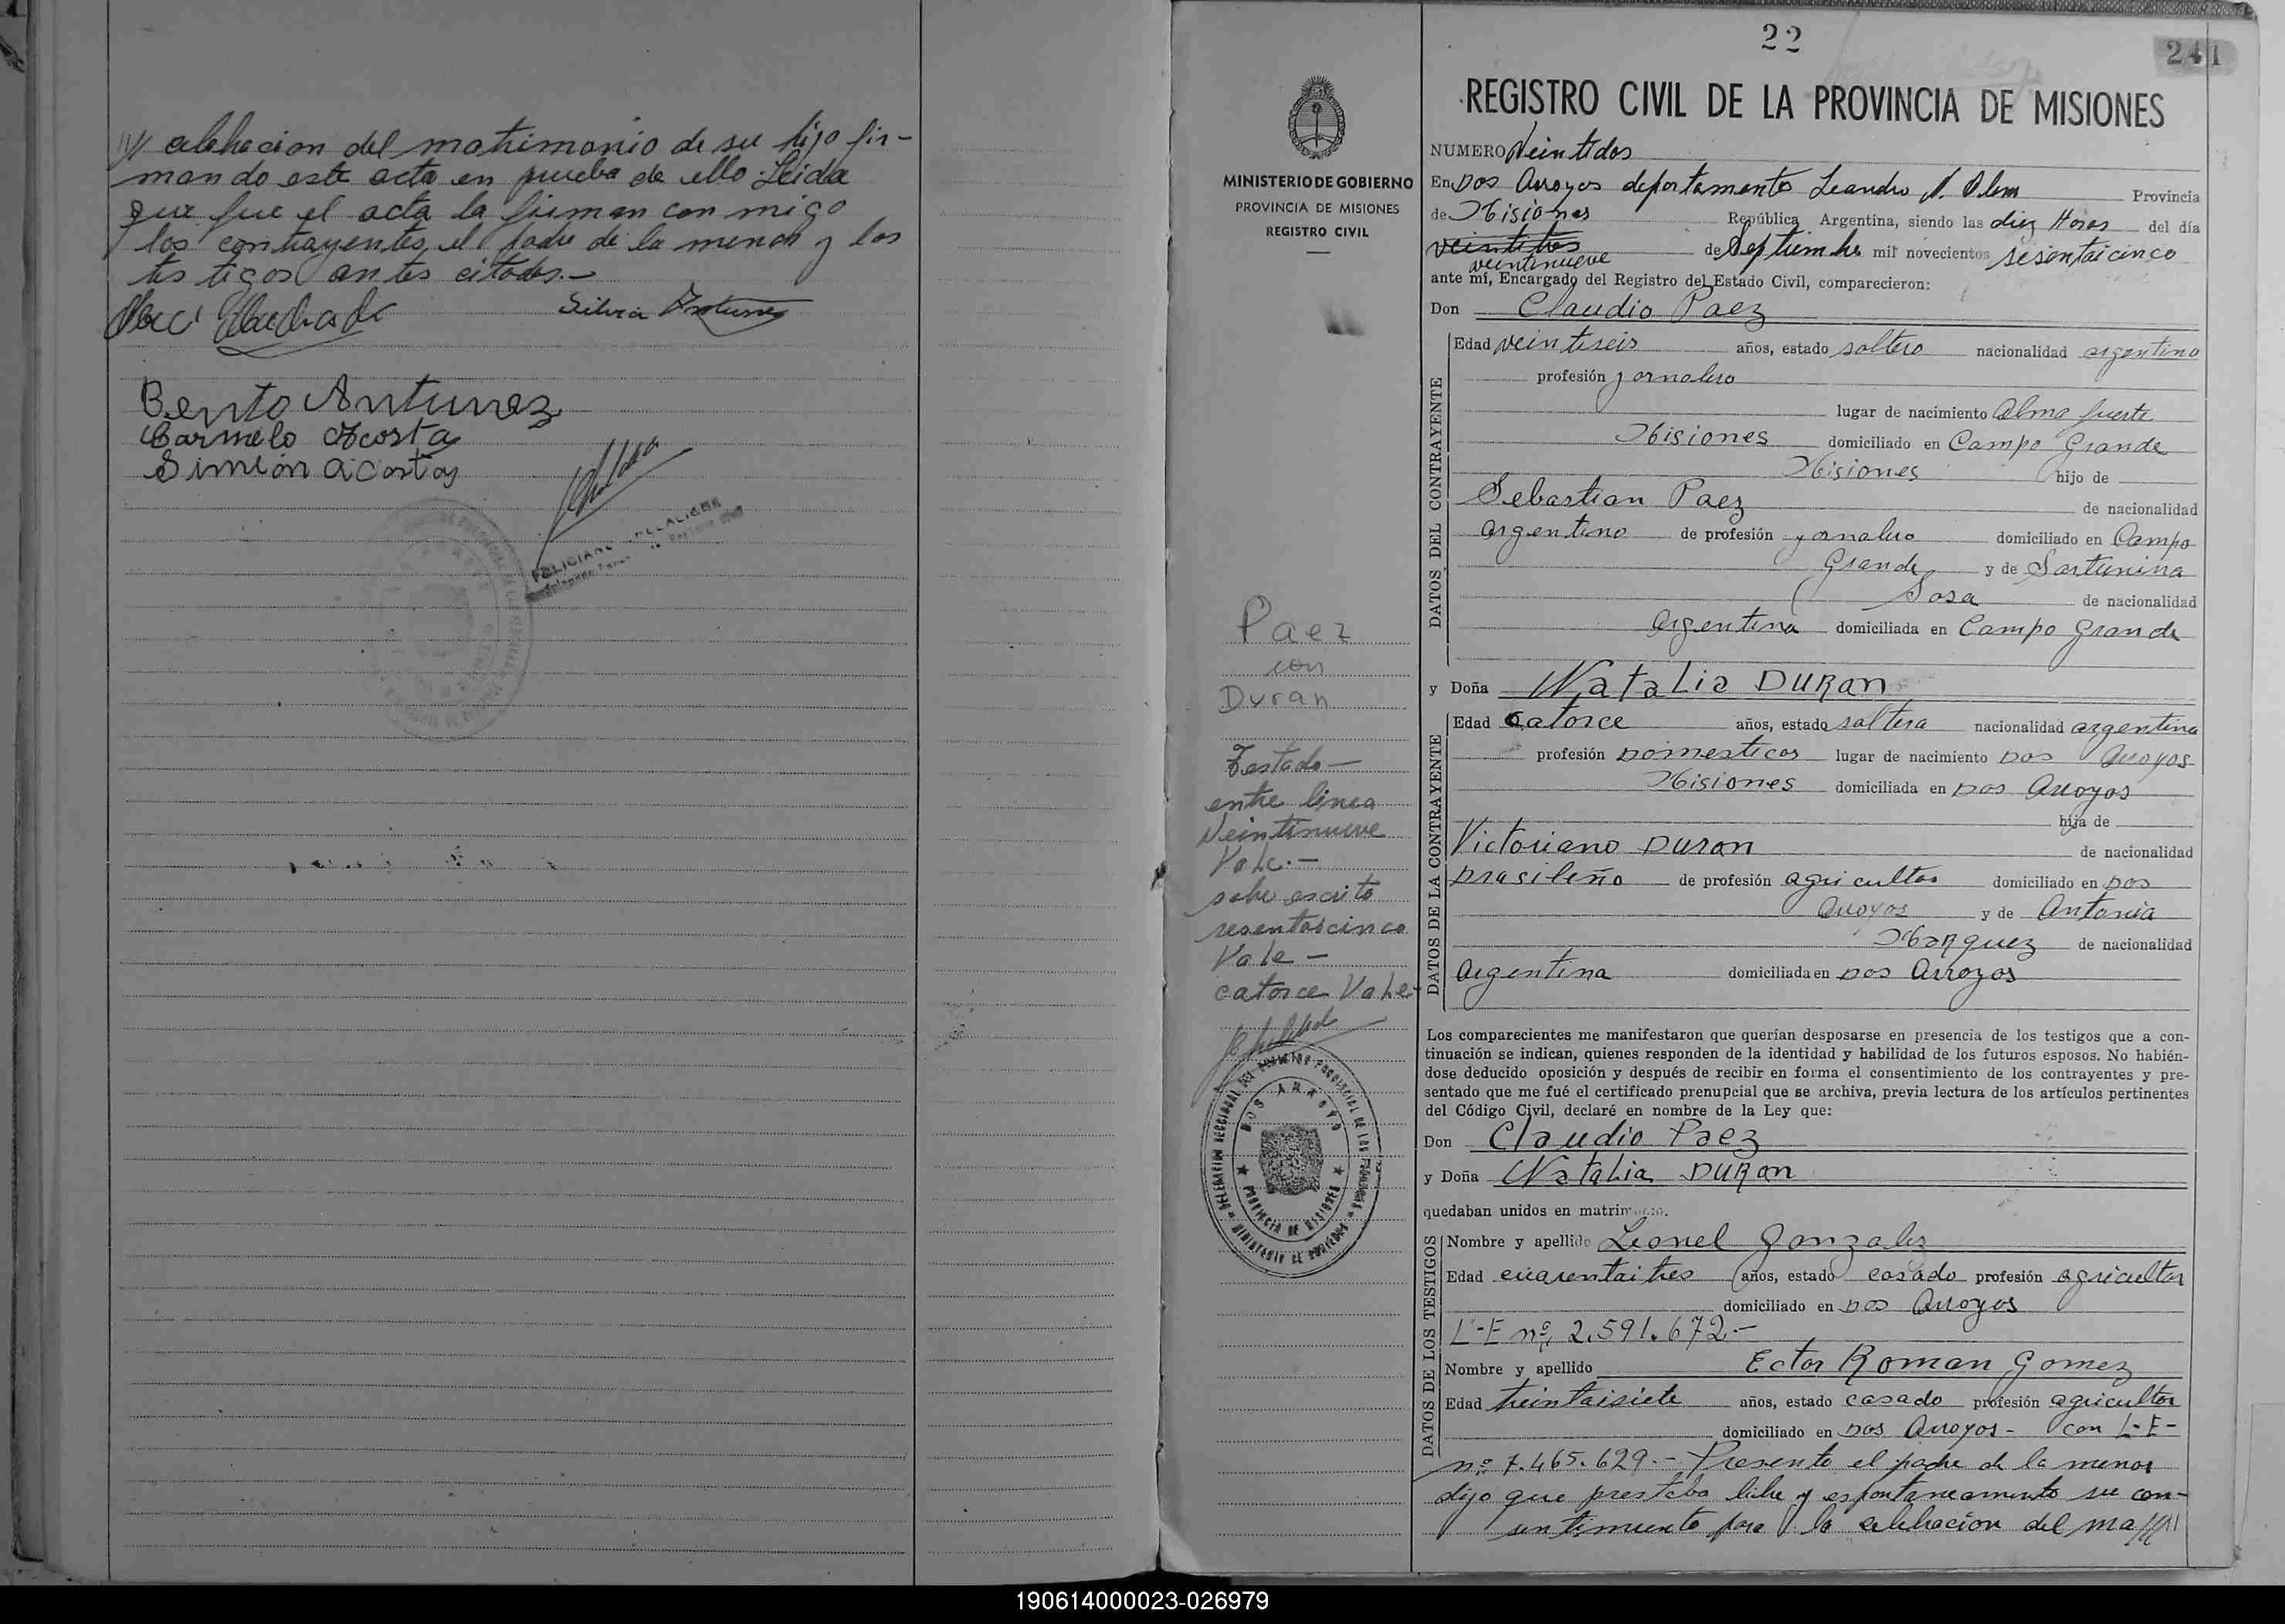 celebracion del matrimonio de su hijo fir-
mando este acta en prueba de ello Leida
que fue el acta la firman con migo
los contrayentes, el padre de la menor y los
testigos antes citados.-
Silvia Antunes
Bento Antunez
Carmelo Acosta
Simeón Acosta
FELICIANO
22
241
REGISTRO CIVIL DE LA PROVINCIA DE MISIONES
MINISTERIO DE GOBIERNO
PROVINCIA DE MISIONES
REGISTRO CIVIL
NUMERO Veintidos
En Dos Arroyos departamento Leandro N. Alem Provincia
de Misiones República Argentina, siendo las diez Horas del día
veintitres de Septiembre mil novecientos sesentaicinco
veintinueve
ante mí, Encargado del Registro del Estado Civil, comparecieron:
Don Claudio Paez
DATOS DEL CONTRAYENTE
Edad veintiseis años, estado soltero nacionalidad argentino
profesión jornalero
lugar de nacimiento Alma fuerte
Misiones domiciliado en Campo Grande
Misiones hijo de
Sebastian Paez de nacionalidad
argentino de profesión jornalero domiciliado en Campo
Grande y de Sartunina
Sosa de nacionalidad
argentina domiciliada en Campo Grande
y Doña Natalia Duran
DATOS DE LA CONTRAYENTE
Edad catorce años, estado soltera nacionalidad argentina
profesión Domesticos lugar de nacimiento Dos Arroyos
Misiones domiciliada en Dos Arroyos
hija de
Victoriano Duran de nacionalidad
brasileño de profesión agricultor domiciliado en Dos
Arroyos y de Antonia
Marquez de nacionalidad
Argentina domiciliada en Dos Arroyos
Paez
con
Duran
Testado-
entre linea
Veintinueve
Vale.-
sobre escrito
sesentaicinco
Vale-
catorce Vale-
DOS ARROYOS
PROVINCIA DE MISIONES
Los comparecientes me manifestaron que querían desposarse en presencia de los testigos que a con-
tinuación se indican, quienes responden de la identidad y habilidad de los futuros esposos. No habién-
dose deducido oposición y después de recibir en forma el consentimiento de los contrayentes y pre-
sentado que me fué el certificado prenupcial que se archiva, previa lectura de los artículos pertinentes
del Código Civil, declaré en nombre de la Ley que:
Don Claudio Paez
y Doña Natalia Duran
quedaban unidos en matrimonio.
DATOS DE LOS TESTIGOS
Nombre y apellido Leonel Gonzalez
Edad cuarentaitres años, estado casado profesión agricultor
domiciliado en Dos Arroyos
L-E nº, 2.591.672.-
Nombre y apellido Ector Roman Gomez
Edad treintaisiete años, estado casado profesión agricultor
domiciliado en Dos Arroyos- con L-E-
nº 7.465.629.- Presente el padre de la menor
dijo que prestaba libre y espontaneamente su con-
sentimiento para la celebracion del ma
190614000023-026979